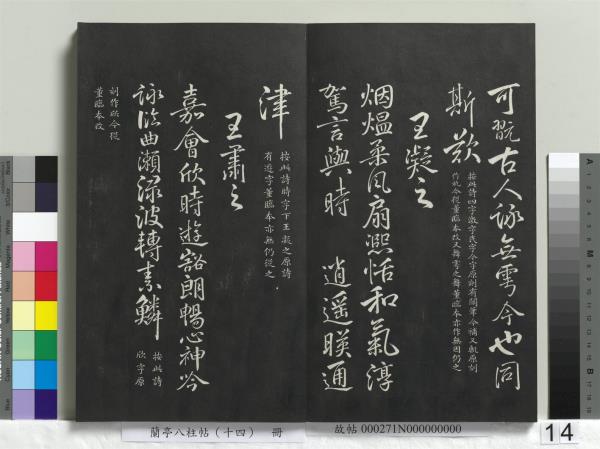 可翫古人詠無雩今也同
斯歎
按此詩四字激字民字今字原刻有闕筆今補又歎原刻
作既今從董臨本改又舞雩之舞董臨本亦作無因仍之
王凝之
烟熅柔風扇熙恬和氣淳
駕言興時　逍遥暎通
津
按此詩時字下王凝之原詩
有遊字董臨本亦無仍從之
王肅之
嘉會欣時遊豁朗暢心神吟
詠託曲瀨淥波轉素鱗
按此詩
欣字原
刻作欣今從
董臨本改
蘭亭八柱帖（十四）　冊
故帖 000271N000000000
14